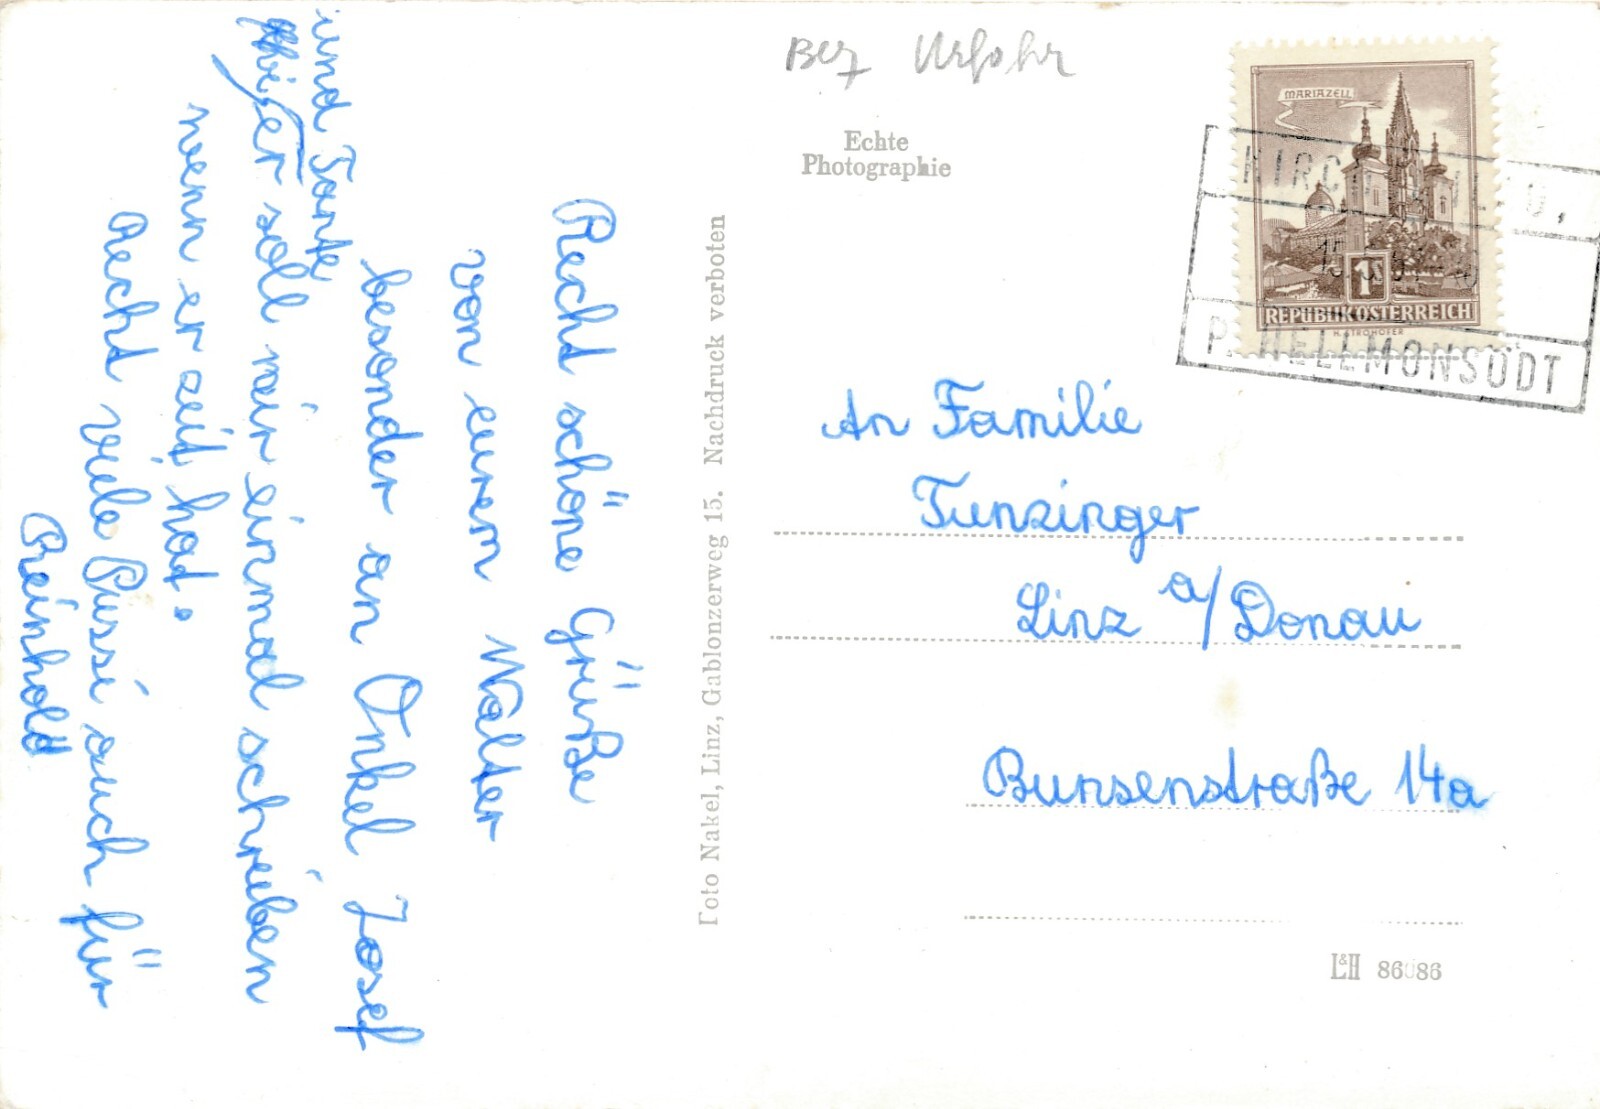 Bez Urfahr
Echte
Photographie
MARIAZELL
1S
REPUBLIK ÖSTERREICH
H. STROHOFER
P. HELLMONSÖDT
Recht schöne Grüße
von eurem Walter
besonder an Onkel Josef
und Tante
er soll mir einmal schreiben
wenn er zeit hat.
Recht viele Pussi auch für
Reinhold
Foto Nakel, Linz, Gablonzerweg 15. Nachdruck verboten
An Familie
Tunzinger
Linz a/Donau
Bunsenstraße 14a
L&H 86086